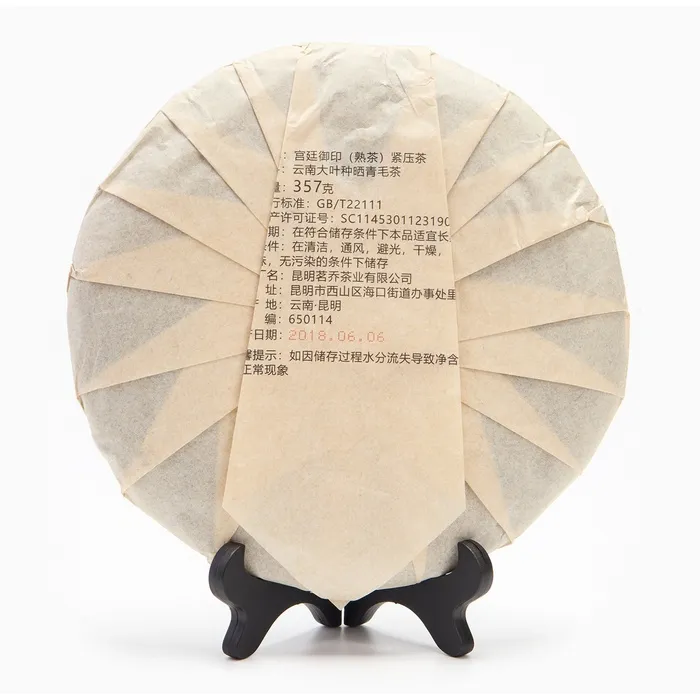 ：宫廷御印（熟茶）紧压茶
：云南大叶种晒青毛茶
量：357克
行标准：GB/T22111
产许可证号：SC114530112319
期：在符合储存条件下本品适宜长
条件：在清洁，通风，避光，干燥，
味，无污染的条件下储存
名：昆明茗乔茶业有限公司
址：昆明市西山区海口街道办事处里
地：云南·昆明
编：650114
日期：2018.06.06
提示：如因储存过程水分流失导致净含
正常现象